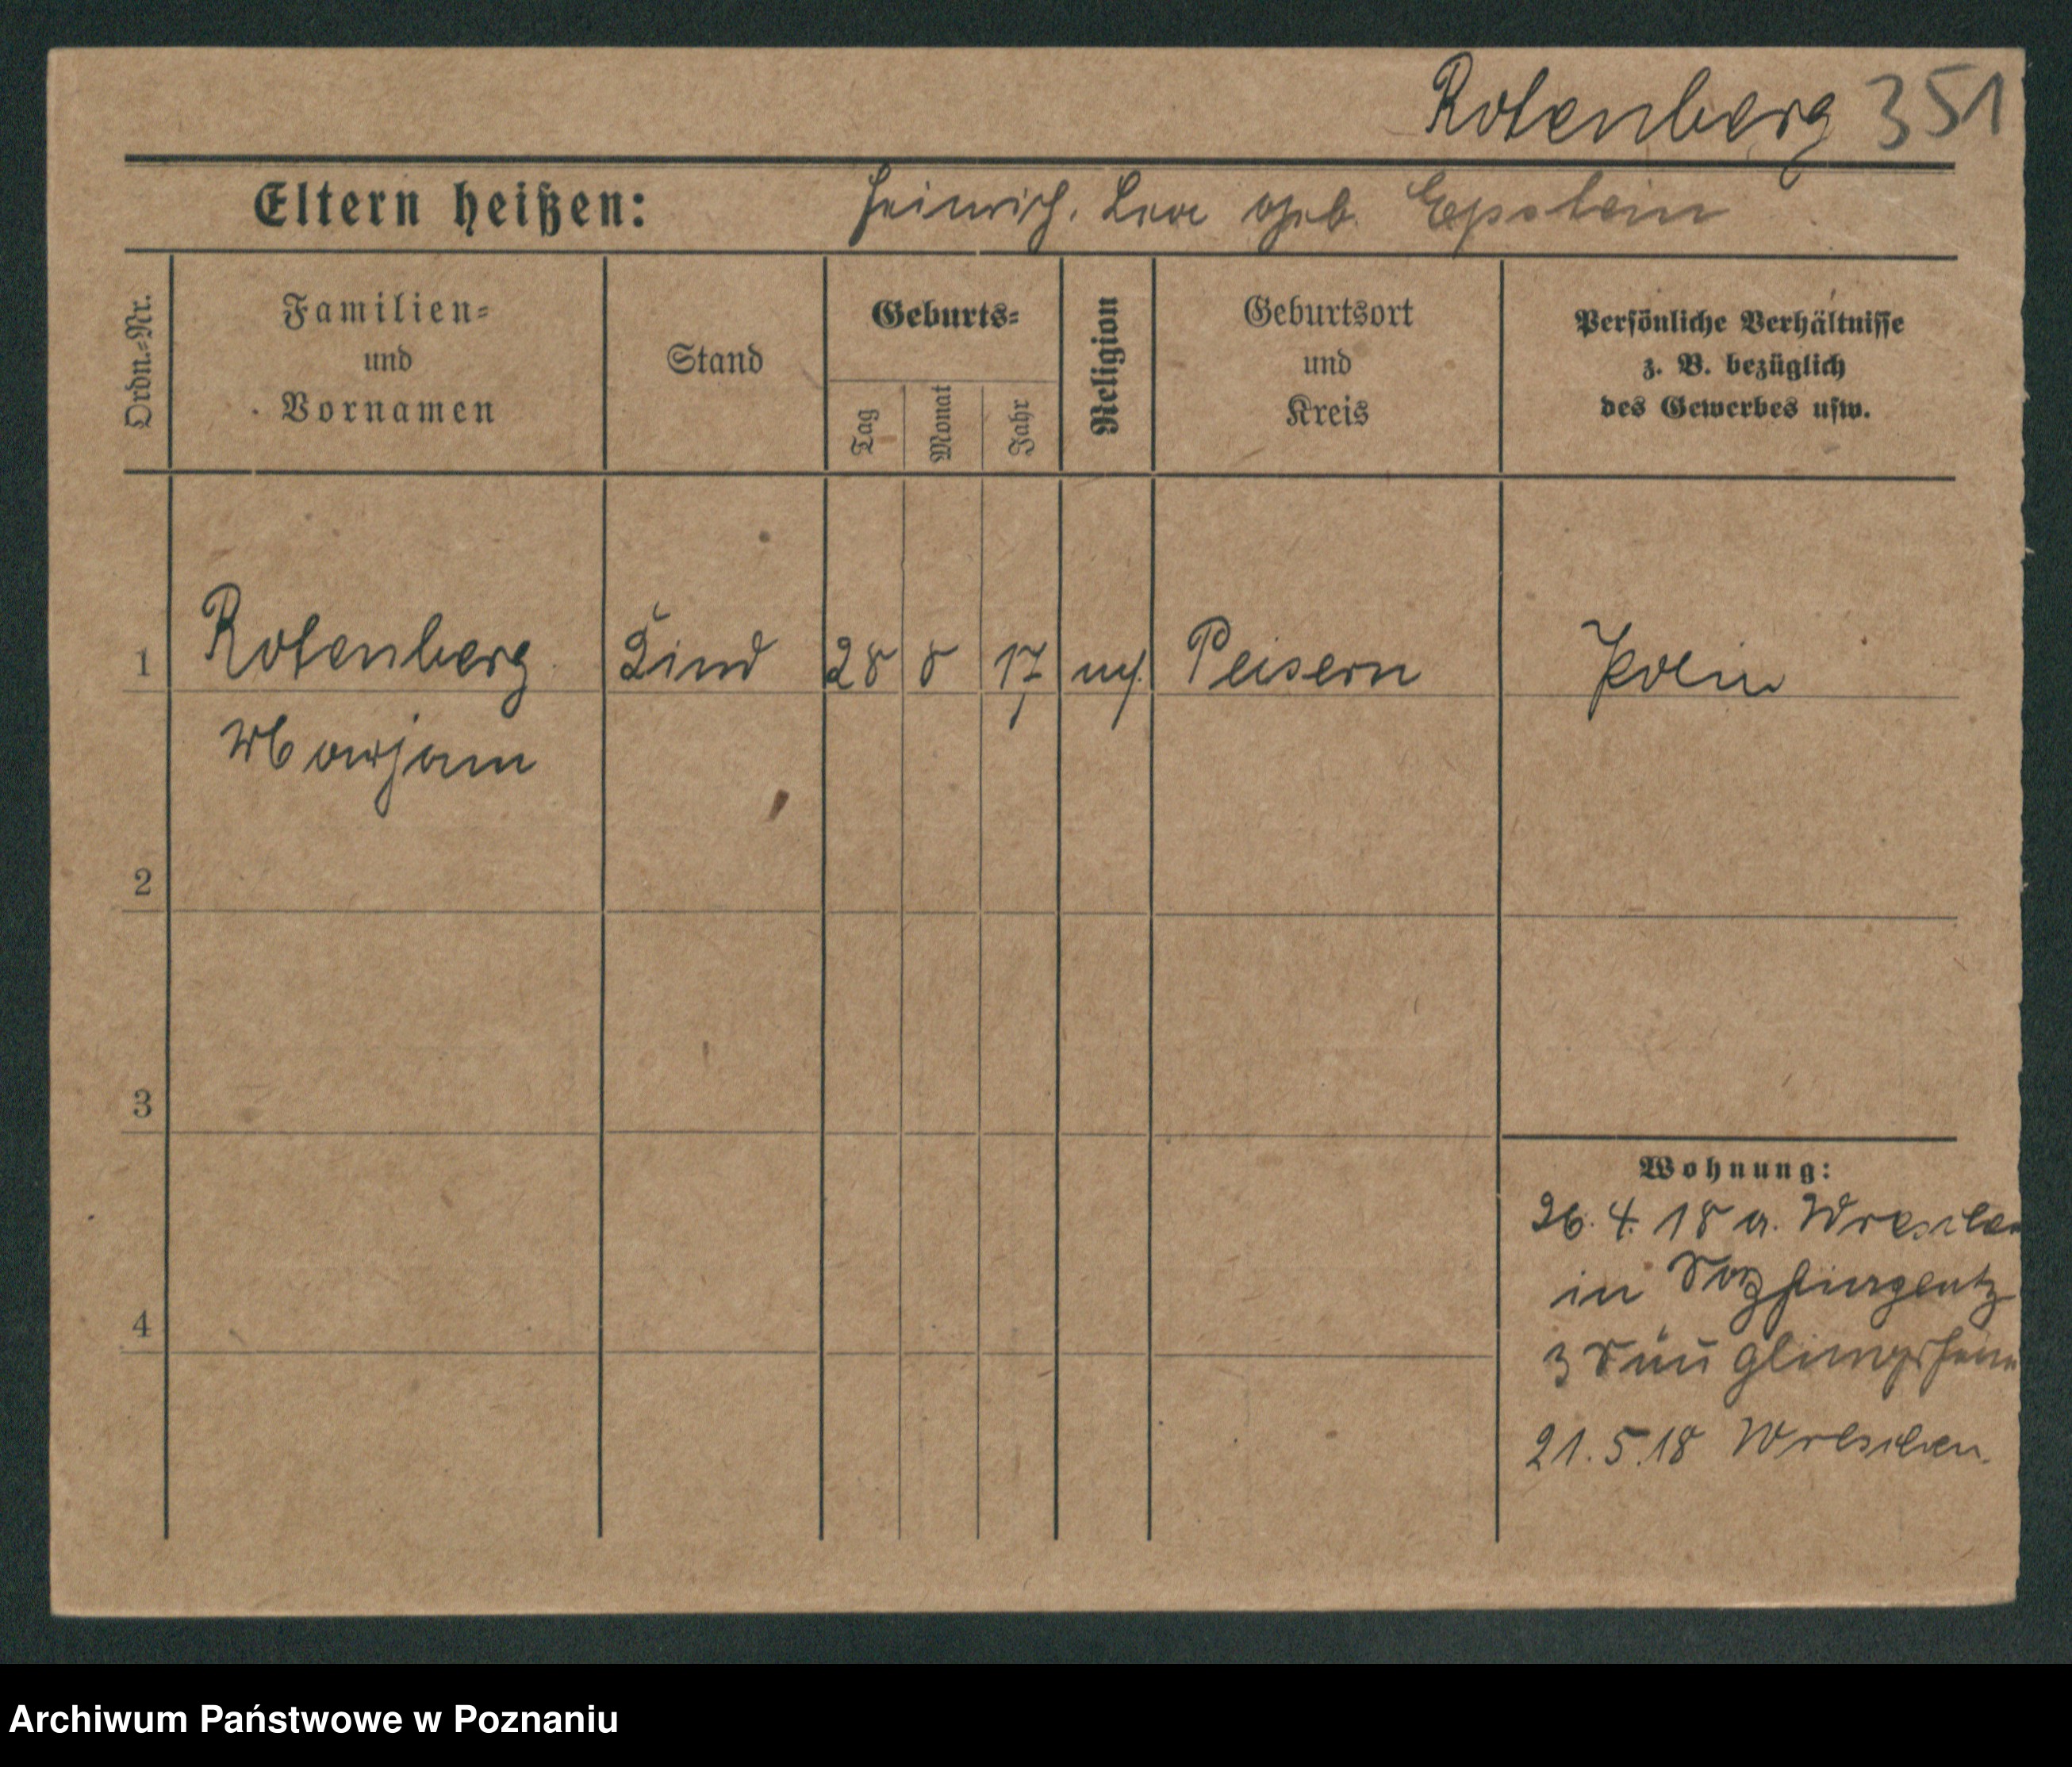 Rotenberg 351
Eltern heißen: Heinrich, geb. Epstein
Ordn.=Nr.
Familien=
und
Vornamen
Stand
Geburts=
Tag
Monat
Jahr
Religion
Geburtsort
und
Kreis
Persönliche Verhältnisse
z. B. bezüglich
des Gewerbes usw.
1 Rotenberg Kind 28 8 17 Peisern
Marjam
2
3
4
Wohnung:
26. 4. 18 a. Wreschen
in
3 Säuglingsheim
21. 5. 18 Wreschen.
Archiwum Państwowe w Poznaniu